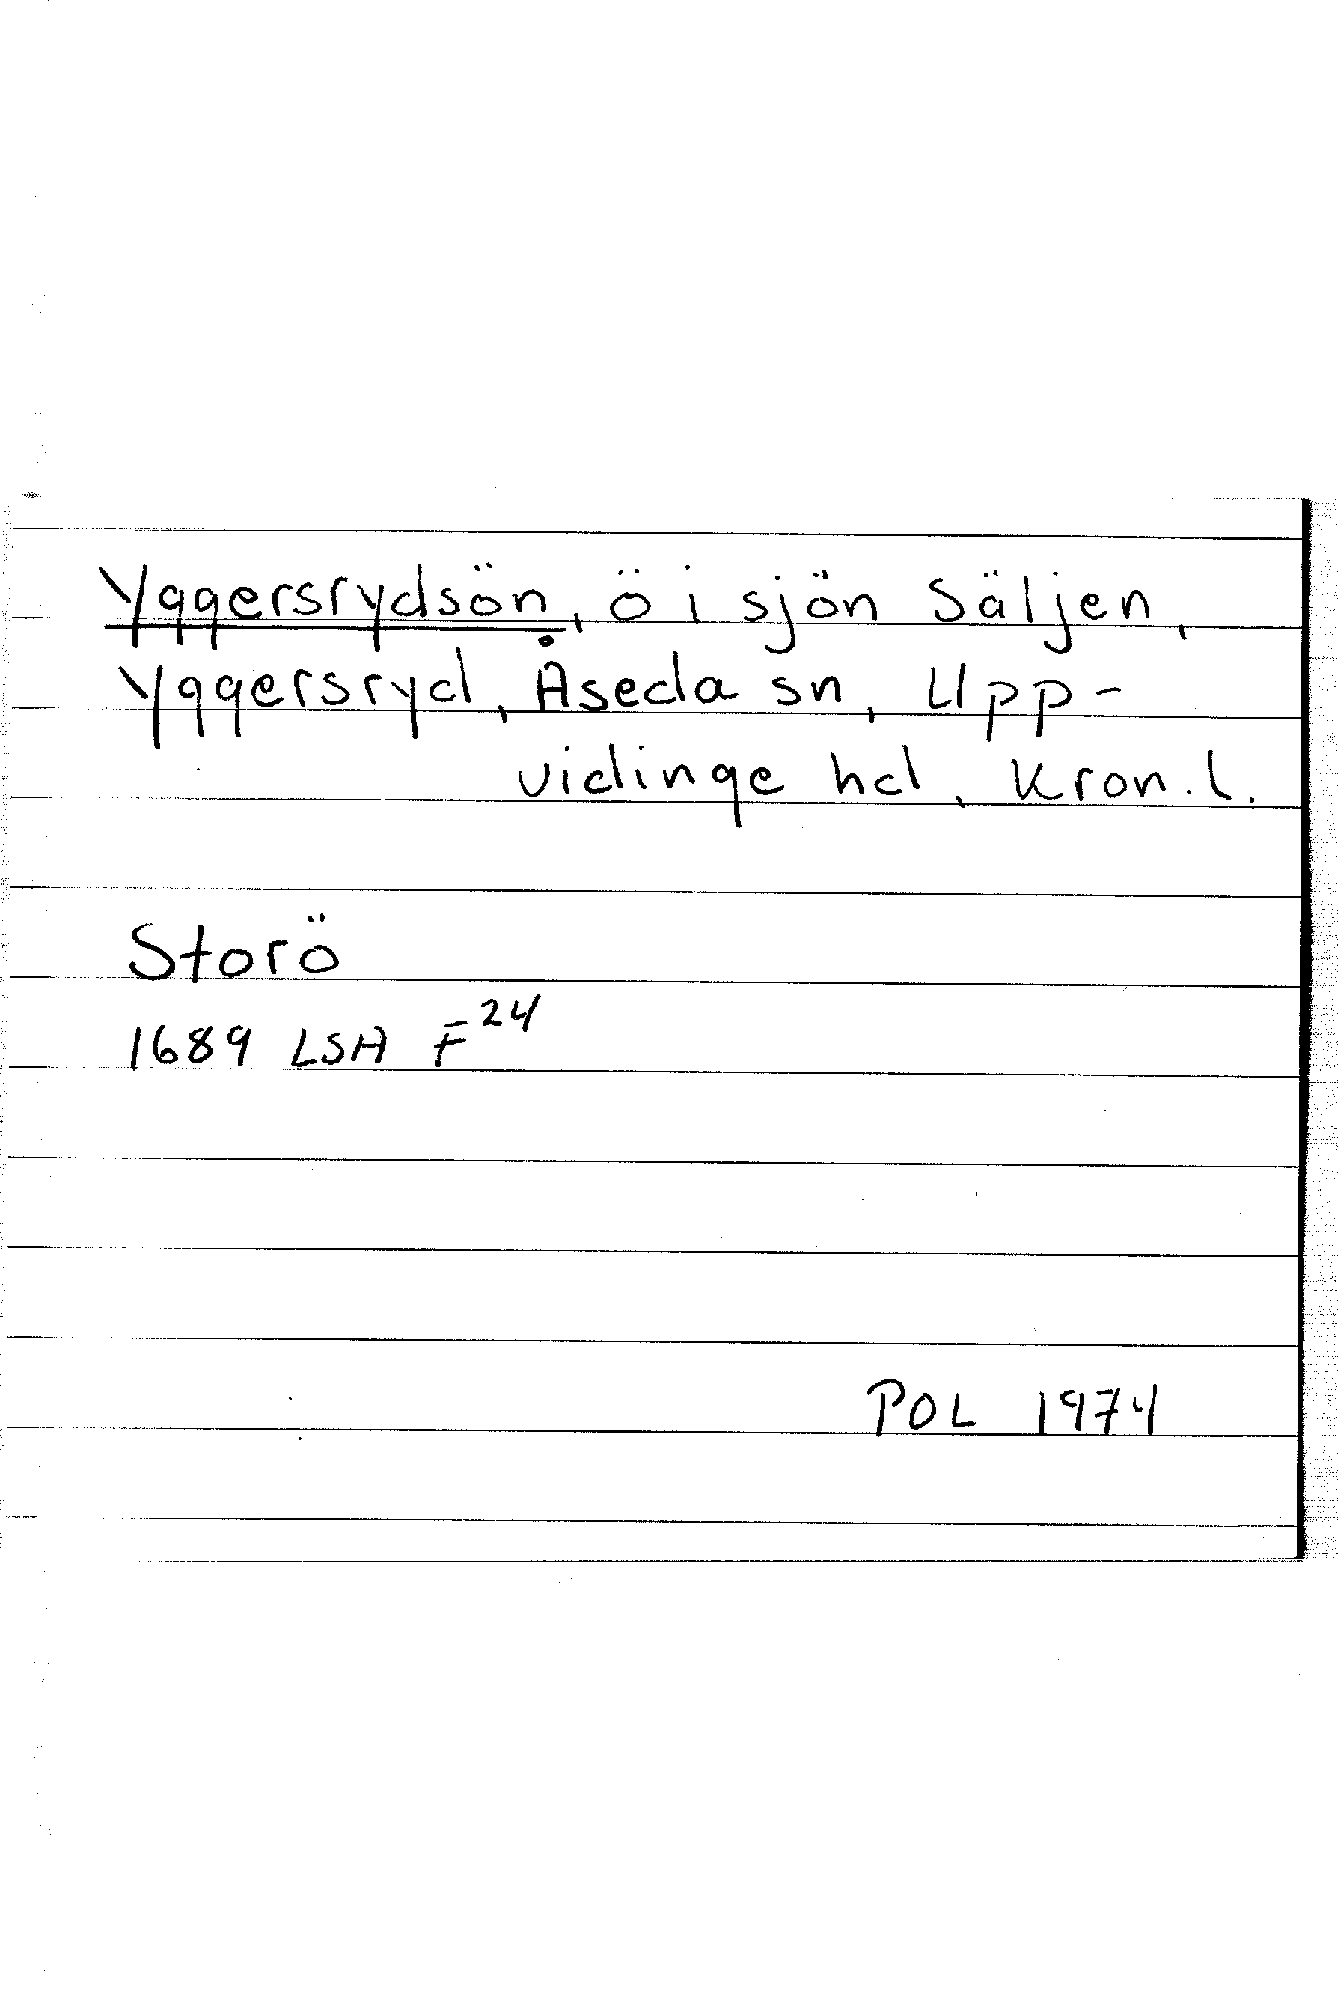 Yggersrydsön, ö i sjön Säljen,
Yggersryd, Åseda sn, Upp-
vidinge hd, Kron.l.
Storö
1689 LSA F 24
POL 1974